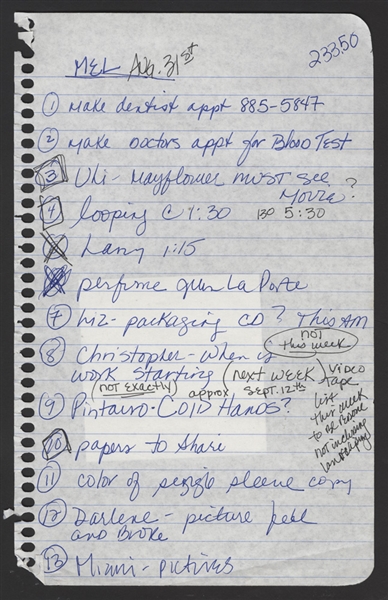 233.50
MEL Aug. 31st
① make dentist appt 885-5847
② make Doctors appt for Blood Test
③ Uli - Mayflower must see
Movie?
④ looping @ 4:30 5:30
Larry 1:15
perfume Quin La Porte
⑦ Liz - packaging CD? This AM
not this week
⑧ Christopher - when is
work starting
(not exactly) approx (next week Sept. 12th)
video
tape
list
this week
to be redone
not including
landscaping
⑨ Pintauro - Cold Hands?
⑩ papers to share
⑪ color of single sleeve copy
⑫ Darlene - picture feel
and Broke
⑬ Mimi - pictures